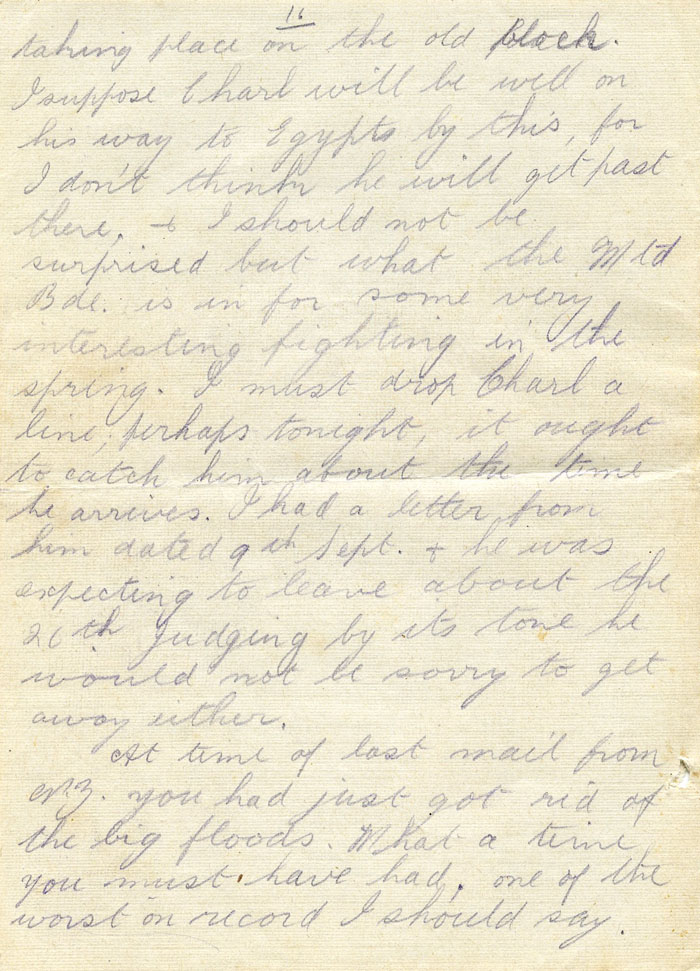 16
taking place on the old block.
I suppose Charl will be well on
his way to Egypts by this, for
I don't think he will get past
there, + I should not be
surprised but what the Mtd
Bde. is in for some very
interesting fighting in the
spring. I must drop Charl a
line, perhaps tonight, it ought
to catch him about the time
he arrives. I had a letter from
him dated 9th Sept. + he was
expecting to leave about the
26th judging by its tone he
would not be sorry to get
away either.
At time of last mail from
N.Z. you had just got rid of
the big floods. What a time
you must have had, one of the
worst on record I should say.